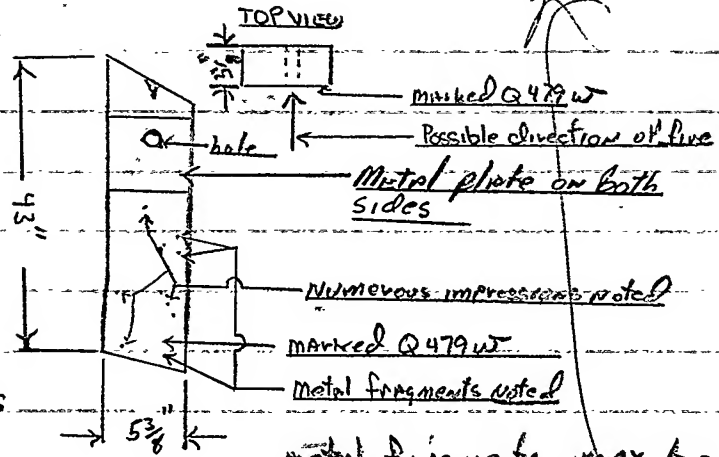 TOP VIEW
marked Q479 w
Possible direction of fire
hole
Metal plate on both
sides
43"
Numerous impressions noted
marked Q479 w
metal fragments noted
5 3/8"
metal